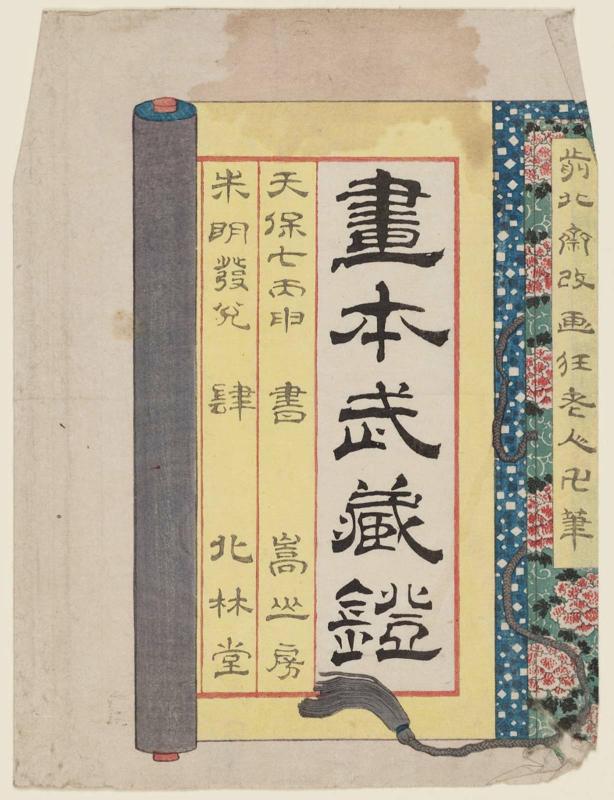 前北齋改画狂老人卍筆
畫本武藏鐙
天保七丙申 書 嵩山房
朱明發兌 肆 北林堂